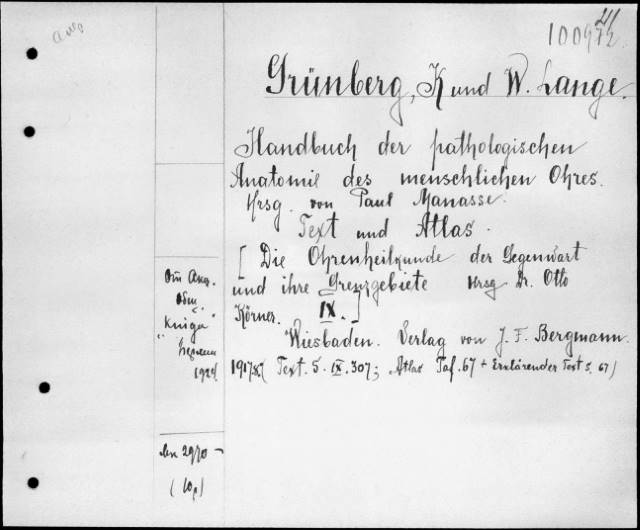 100972
Grünberg, K und W. Lange.
Handbuch der pathologischen
Anatomie des menschlichen Ohres.
Hrsg. von Paul Manasse.
Text und Atlas.
[ Die Ohrenheilkunde der Gegenwart
und ihre Grenzgebiete Hrsg Dr. Otto
Körner. IX. ]
Wiesbaden. Verlag von J. F. Bergmann.
1917. ( Text. S. IX. 307; Atlas Taf. 67 + Erklärender Text S. 67)
"Книга"
192
2970 -